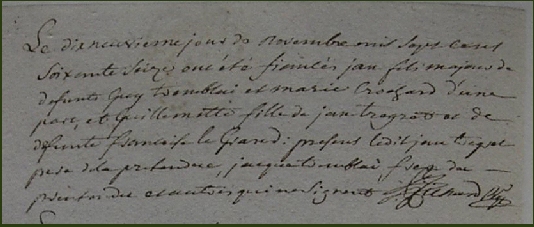 Le dixneuvieme jour de novembre mil sept cent
soixente seize ont été fiancés jan fils majeur de
defunts Guy tremblai et marie Crochard d'une
part, et Guillemette fille de jan tregret et de
defunte francoise le Giard: presens ledit jan
pere de la pretendue, jacque tremblai frere du
pretendu et autres qui ne signent